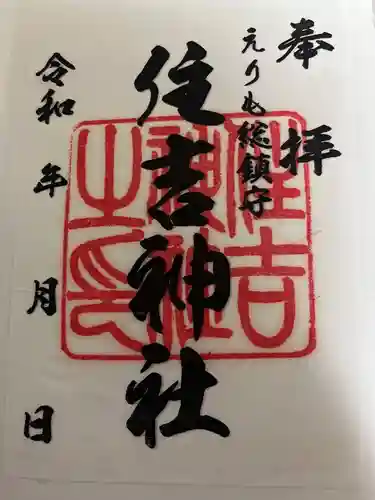 奉拝
えりも総鎮守
住吉神社
令和 年 月 日
住吉神社之印